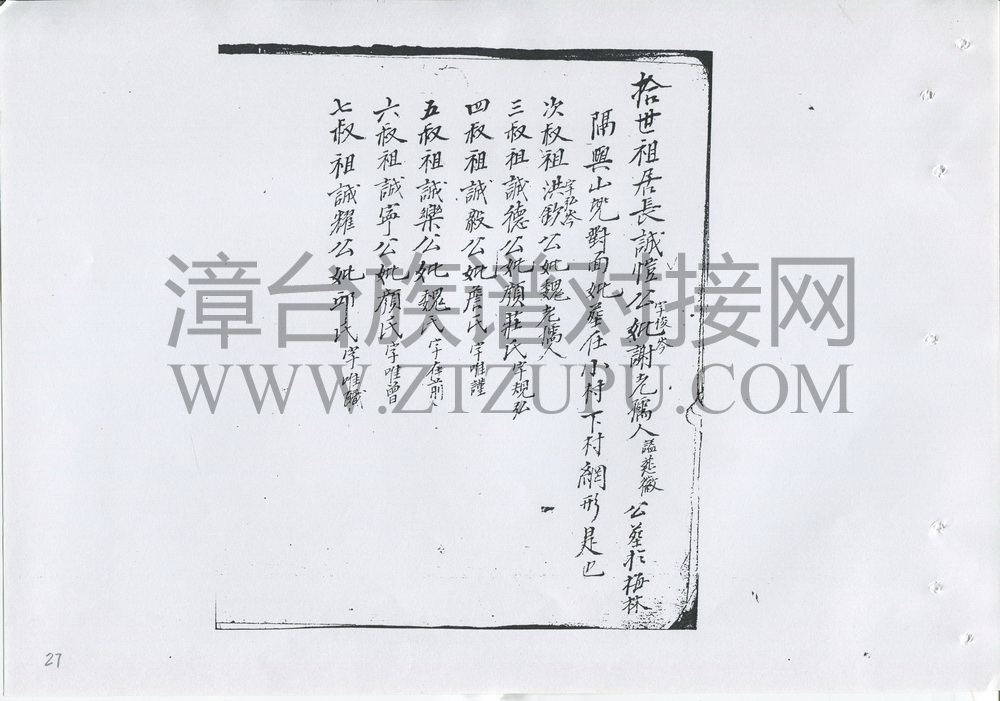 拾世祖居長誠愷公字後岑妣謝老孺人謚慈徽公墓於梅林
隔興山兜對面妣墓在小村下村網形是也
次叔祖洪欽字弘岑公妣魏老孺人
三叔祖誠德公妣顏莊氏字規弘
四叔祖誠毅公妣詹氏字唯謹
五叔祖誠樂公妣魏氏字在前
六叔祖誠寧公妣顏氏字唯曾
七叔祖誠耀公妣邱氏字唯
漳台族谱对接网
WWW.ZTZUPU.COM
27